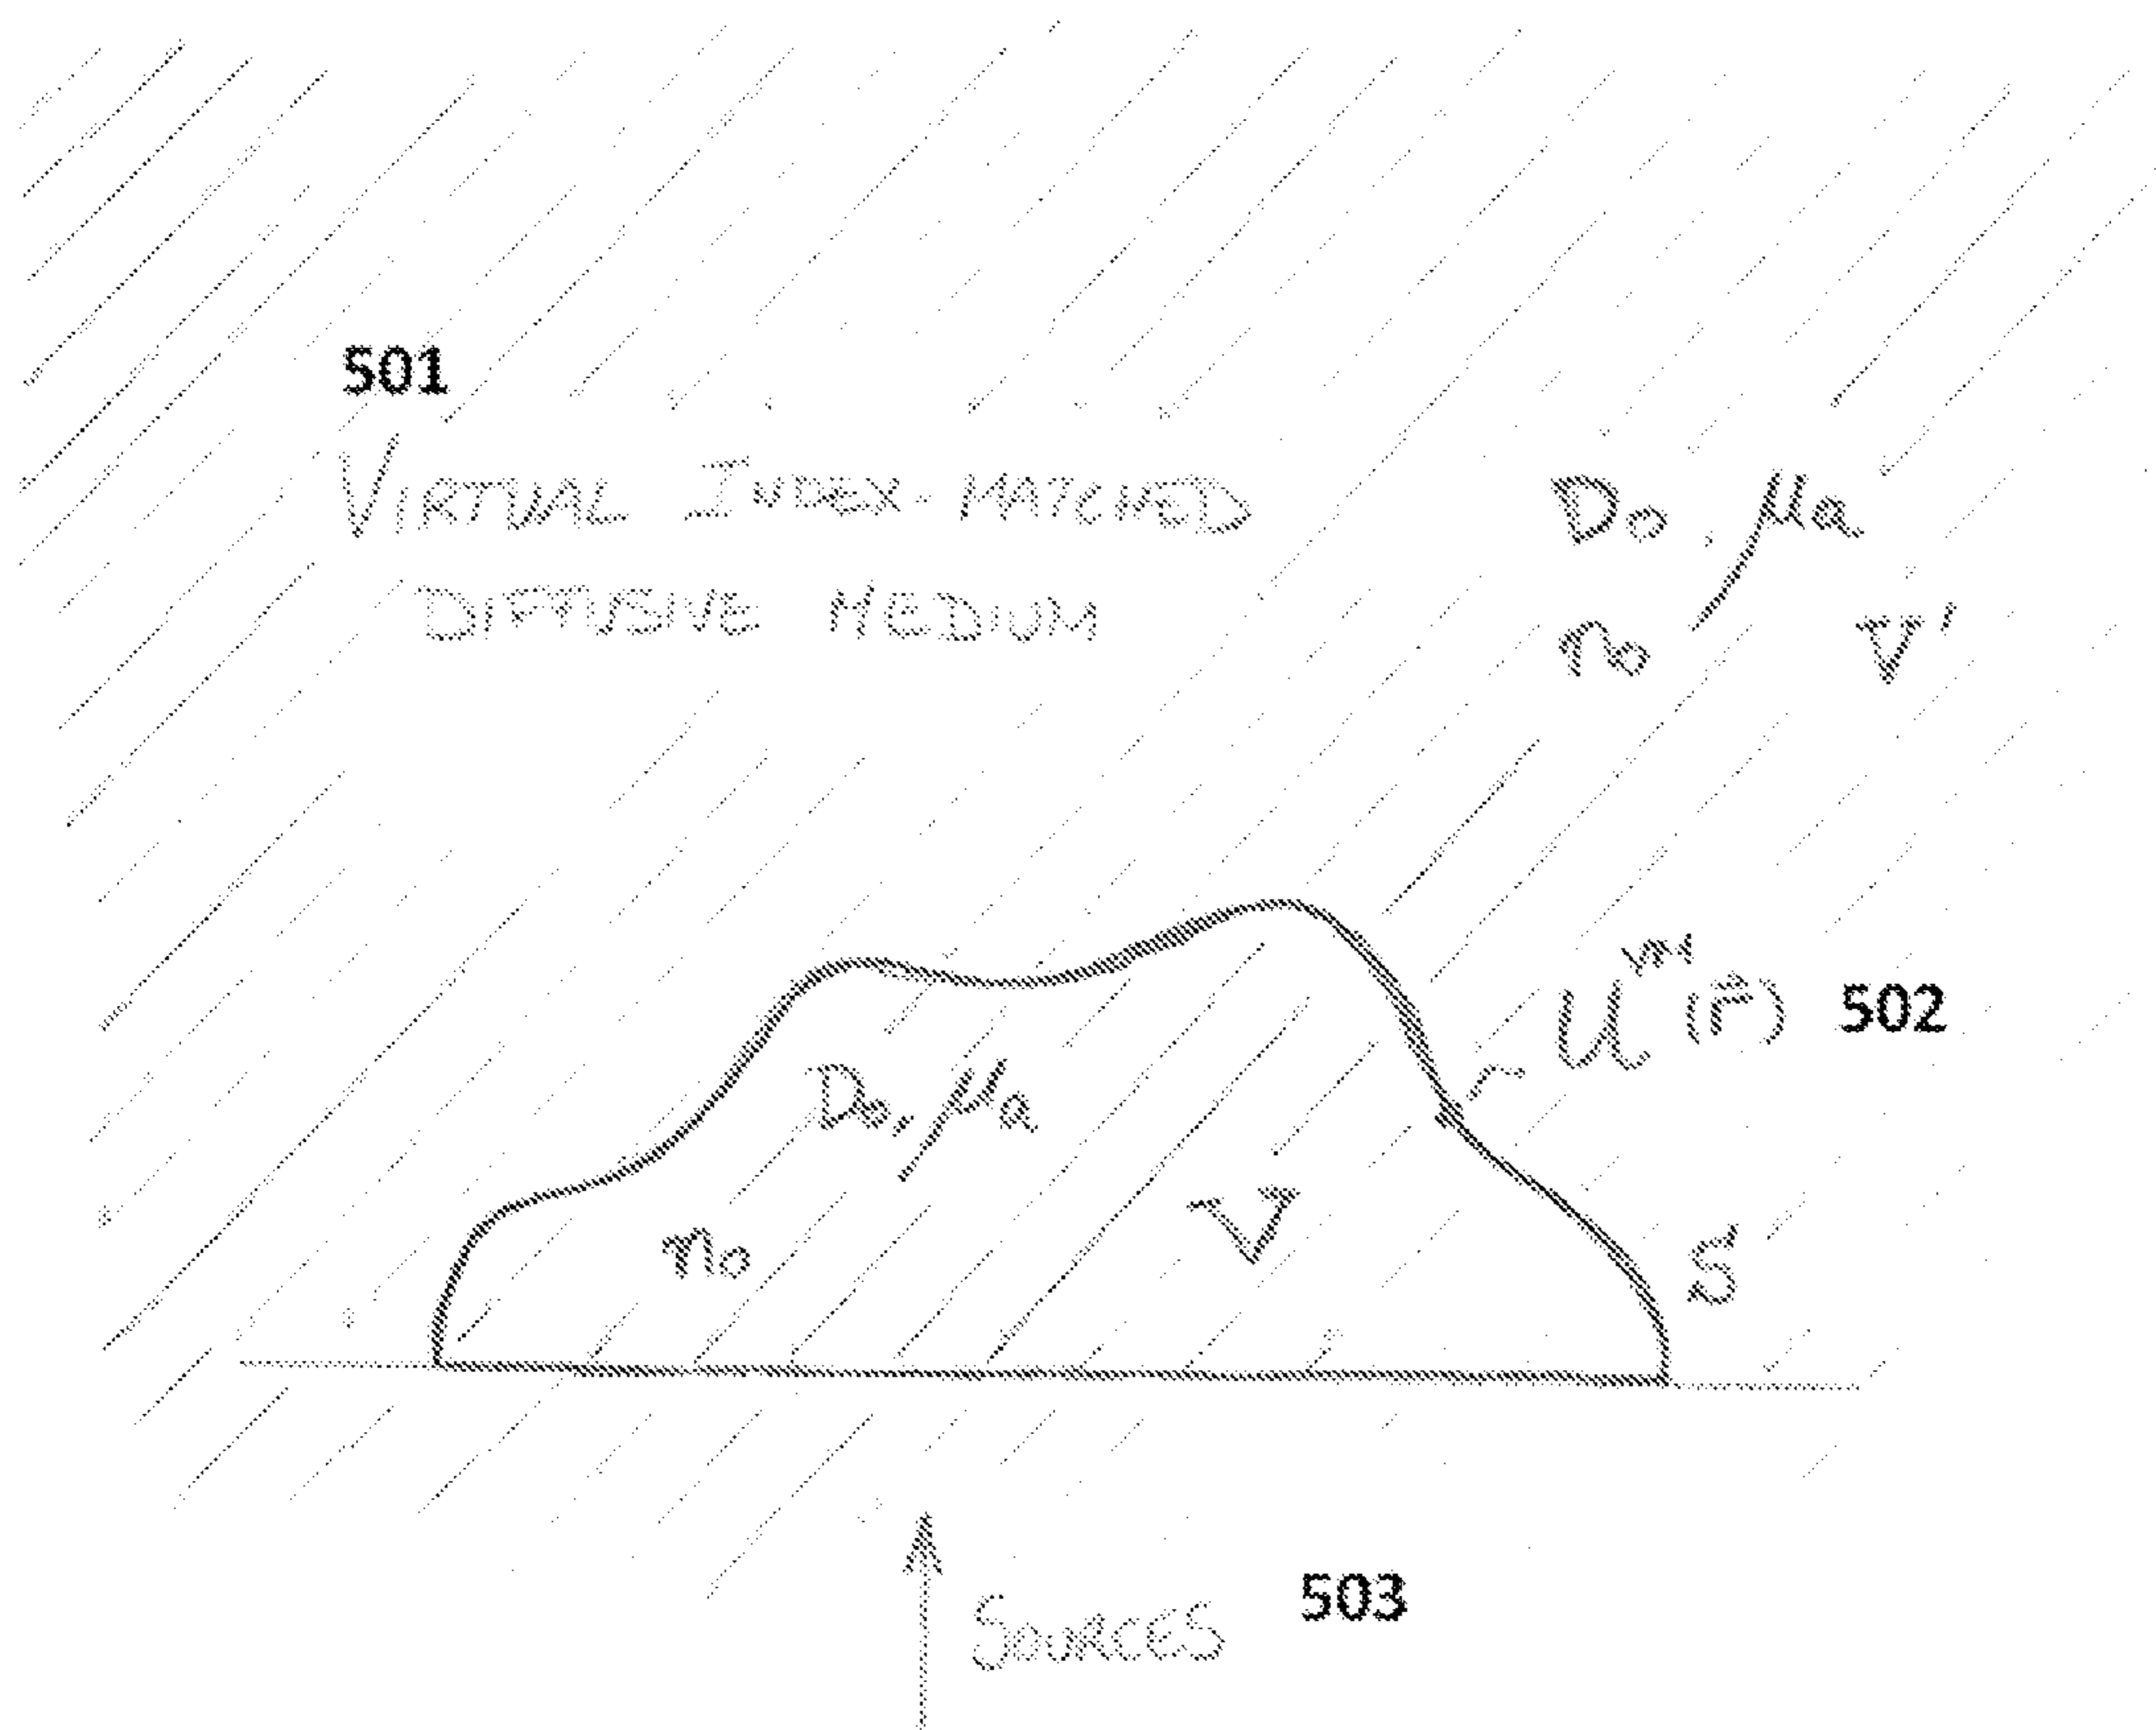 501
VIRTUAL INDEX-MATCHED D₀, μa
DIFFUSIVE MEDIUM n₀ V'
U^VM(r⃗) 502
D₀, μa
n₀ V S
SOURCES 503